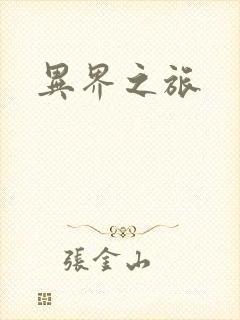 異界之旅
張金山